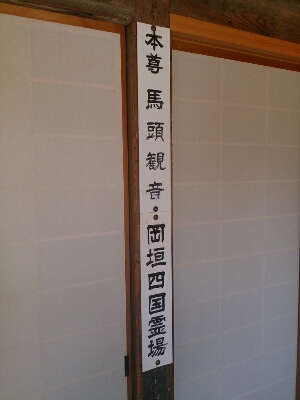 本尊 馬頭観音
岡垣四国霊場